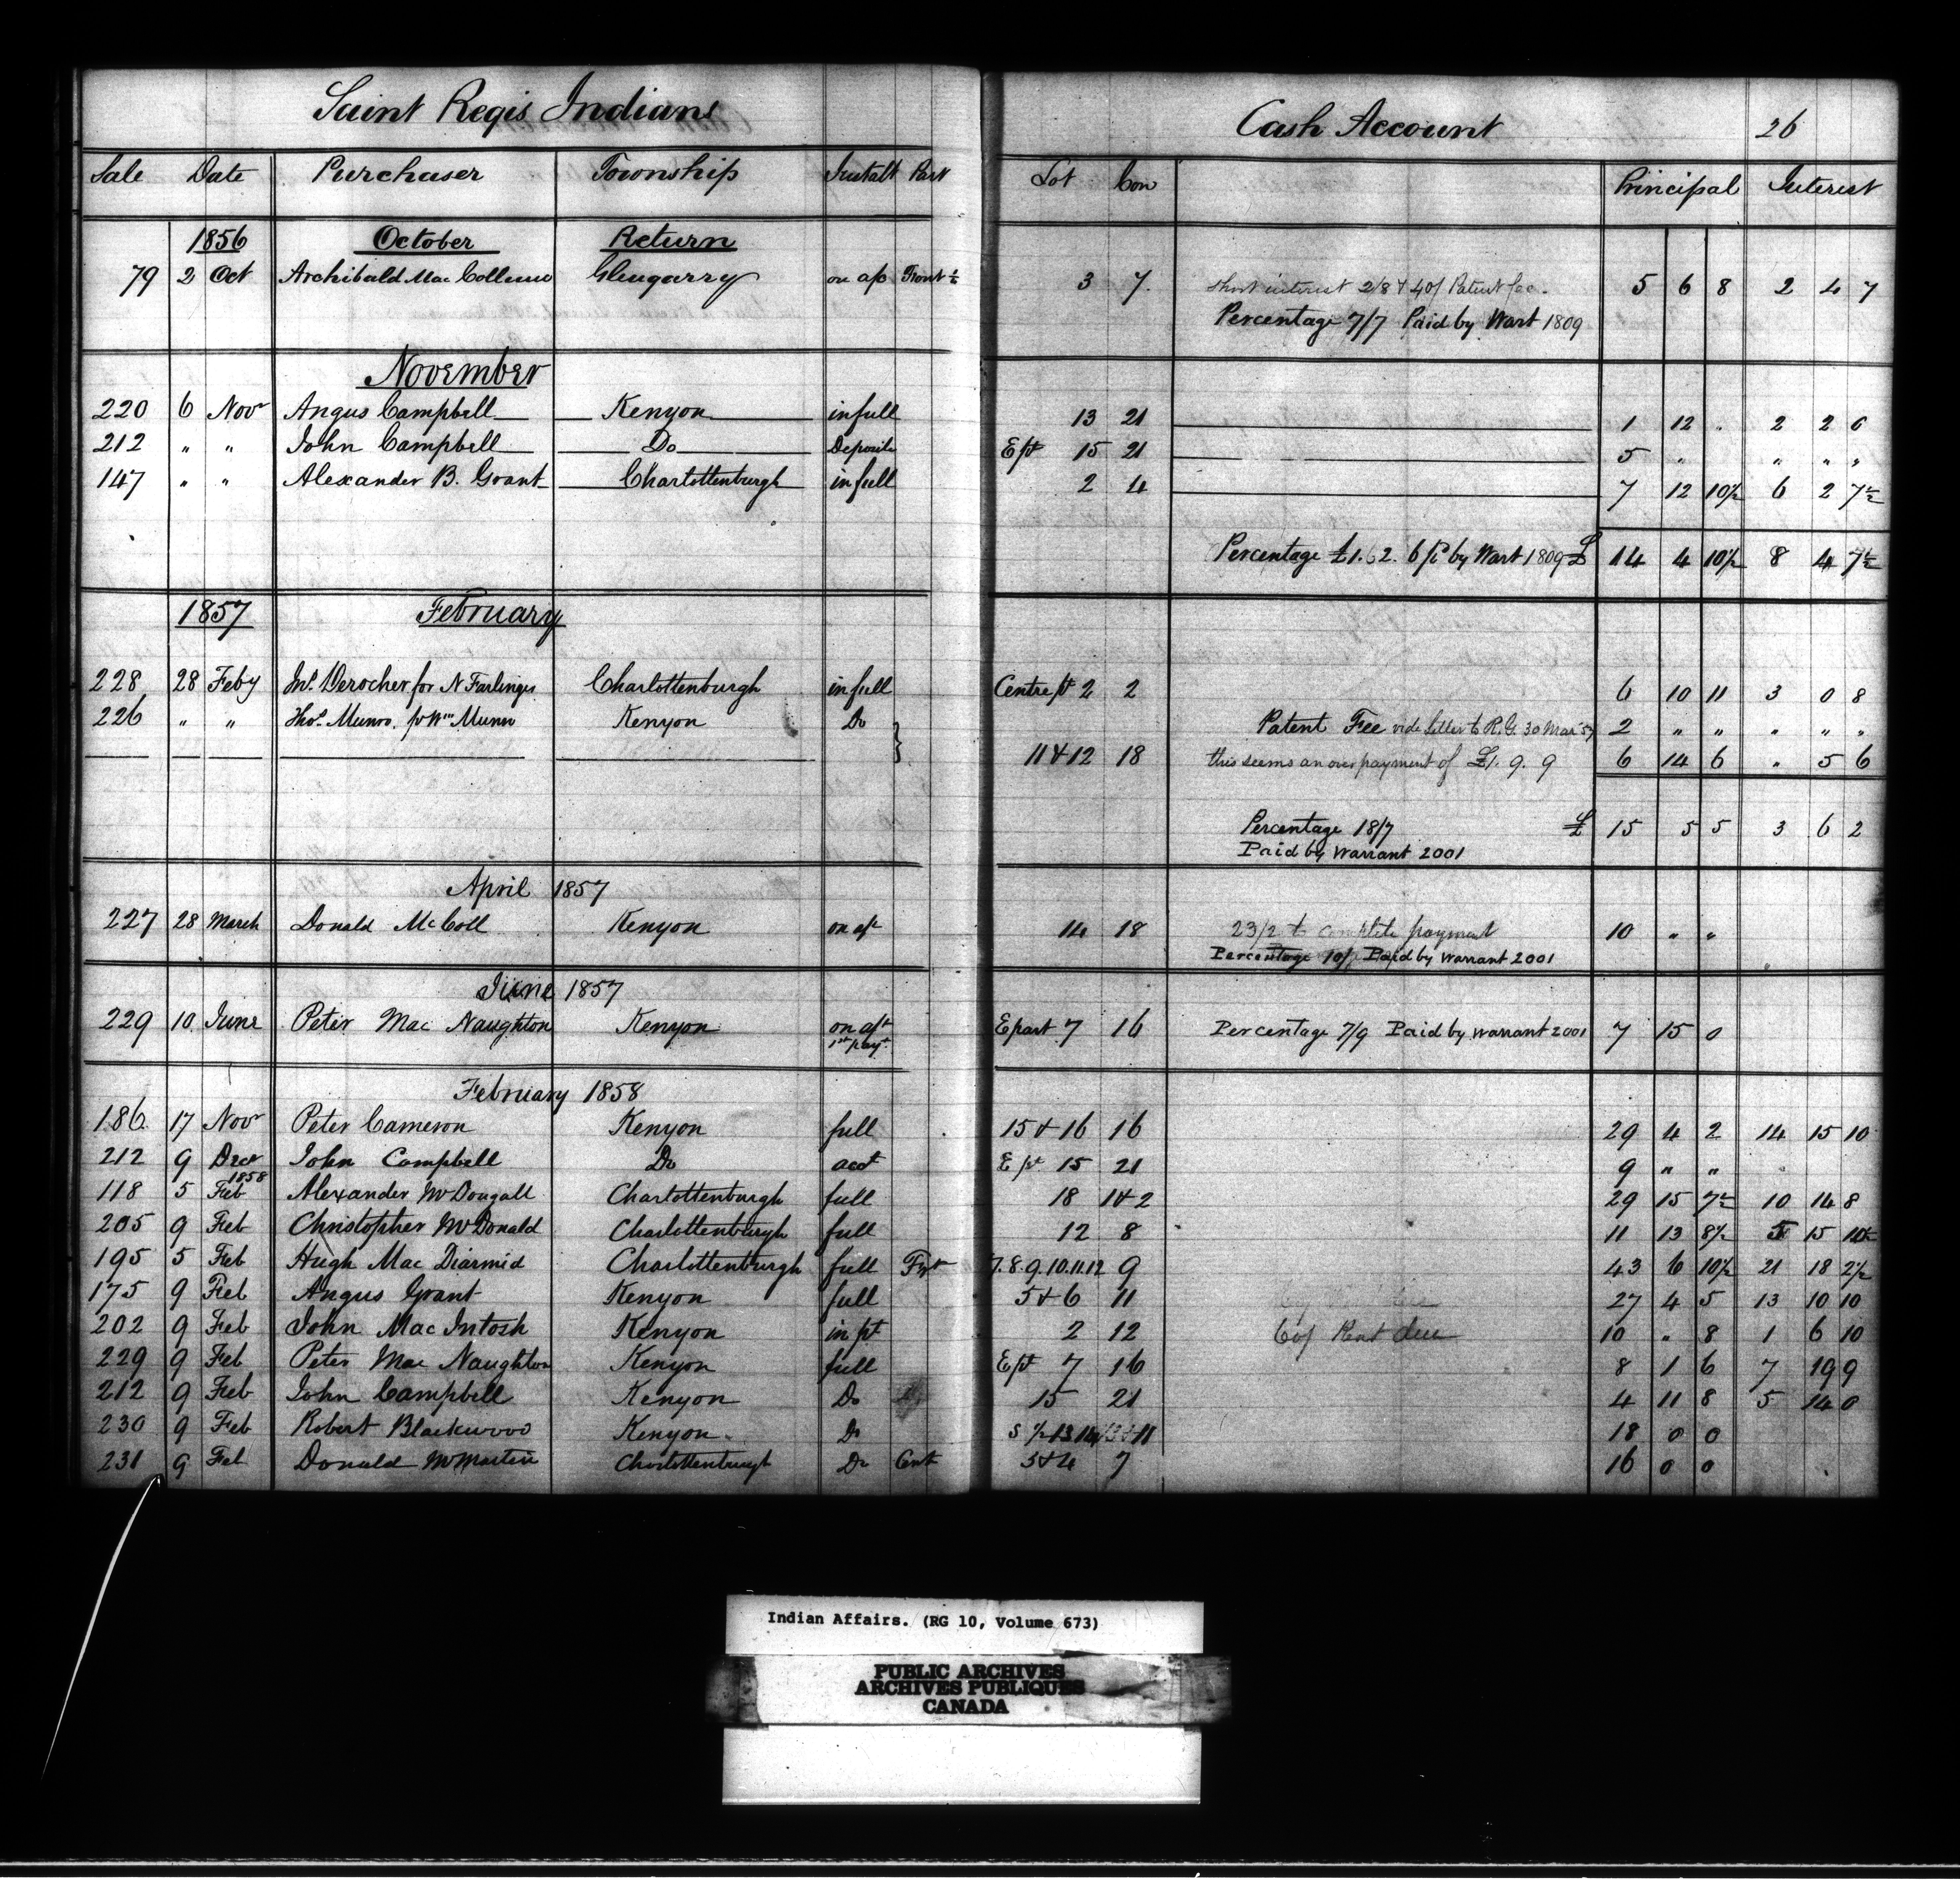 Saint Regis Indians Cash Account 26
Sale Date Purchaser Township Instalt Part Lot Con Principal Interest
1856 October Return
79 2 Oct Archibald Mac Collum Glengarry on a/c Front ½ 3 7. short interest 2/8 & 40/ Patent fee. 5 6 8 2 4 7
Percentage 7/7 Paid by Wart 1809
November
220 6 Novr Angus Campbell Kenyon in full 13 21 1 12 . 2 2 0
212 " " John Campbell Do Deposite E pt 15 21 5 " " " "
147 " " Alexander B. Grant Charlottenburgh in full 2 4 7 12 10½ 6 2 7½
Percentage £1. 2. 6 Pd by Wart 1809 £ 14 4 10½ 8 4 7½
1857 February
228 28 Feby Jno. Derocher for N Farlinger Charlottenburgh in full Centre pt 2 2 6 10 11 3 0 8
226 " " Thos. Munro. for Wm Munro Kenyon Do Patent Fee vide letter to R.G. 30 Mar 57 2 " " " " "
11 & 12 18 this seems an over payment of £1. 9. 9 6 14 6 " 5 6
Percentage 18/7 £ 15 5 5 3 6 2
Paid by Warrant 2001
April 1857
227 28 March Donald McColl Kenyon on a/c 14 18 23/2 to complete payment 10 " "
Percentage 10/ Paid by Warrant 2001
June 1857
229 10 June Peter Mac Naughton Kenyon on a/c E part 7 16 Percentage 7/9 Paid by Warrant 2001 7 15 0
1st payt.
February 1858
186. 17 Novr Peter Cameron Kenyon full 15 & 16 16 29 4 2 14 15 10
212 9 Decr John Campbell Do acct E pt 15 21 9 " "
1858
118 5 Feb Alexander McDougall Charlottenburgh full 18 1 & 2 29 15 7½ 10 14 8
205 9 Feb Christopher McDonald Charlottenburgh full 12 8 11 13 8½ 5 15 10½
195 5 Feb Hugh Mac Diarmid Charlottenburgh full Frt 7.8.9.10.11.12 9 43 6 10½ 21 18 2½
175 9 Feb Angus Grant Kenyon full 5 & 6 11 27 4 5 13 10 10
202 9 Feb John Mac Intosh Kenyon in pt 2 12 60/ Rent due 10 " 8 1 6 10
229 9 Feb Peter Mac Naughton Kenyon full E pt 7 16 8 1 6 7 19 9
212 9 Feb John Campbell Kenyon Do 15 21 4 11 8 5 14 0
230 9 Feb Robert Blackwood Kenyon. Do S ½ 13 18 0 0
231 9 Feb Donald McMartin Charlottenburgh Do Cent 3 & 4 7 16 0 0
Indian Affairs. (RG 10, Volume 673)
PUBLIC ARCHIVES
ARCHIVES PUBLIQUES
CANADA